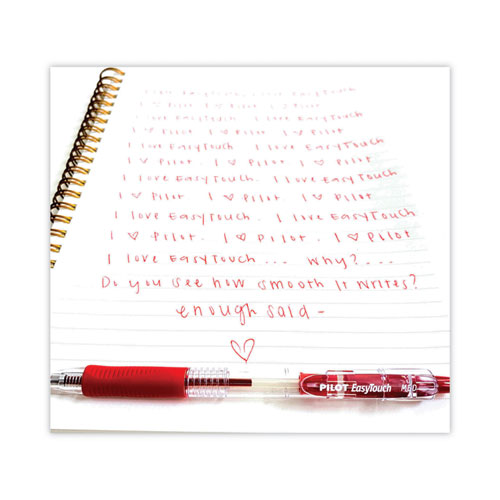 I love EasyTouch. I love EasyTouch
I ♡ Pilot I ♡ Pilot I ♡ Pilot
I love EasyTouch I love EasyTouch
I ♡ Pilot I ♡ Pilot I ♡ Pilot
I love EasyTouch I love EasyTouch
I ♡ Pilot I ♡ Pilot I ♡ Pilot
I love EasyTouch. I love EasyTouch
I ♡ Pilot I ♡ Pilot I ♡ Pilot
I love EasyTouch. I love EasyTouch
I ♡ Pilot. I ♡ Pilot. I ♡ Pilot
I love EasyTouch... Why?...
Do you see how smooth it writes?
enough said -
♡
PILOT EasyTouch MED